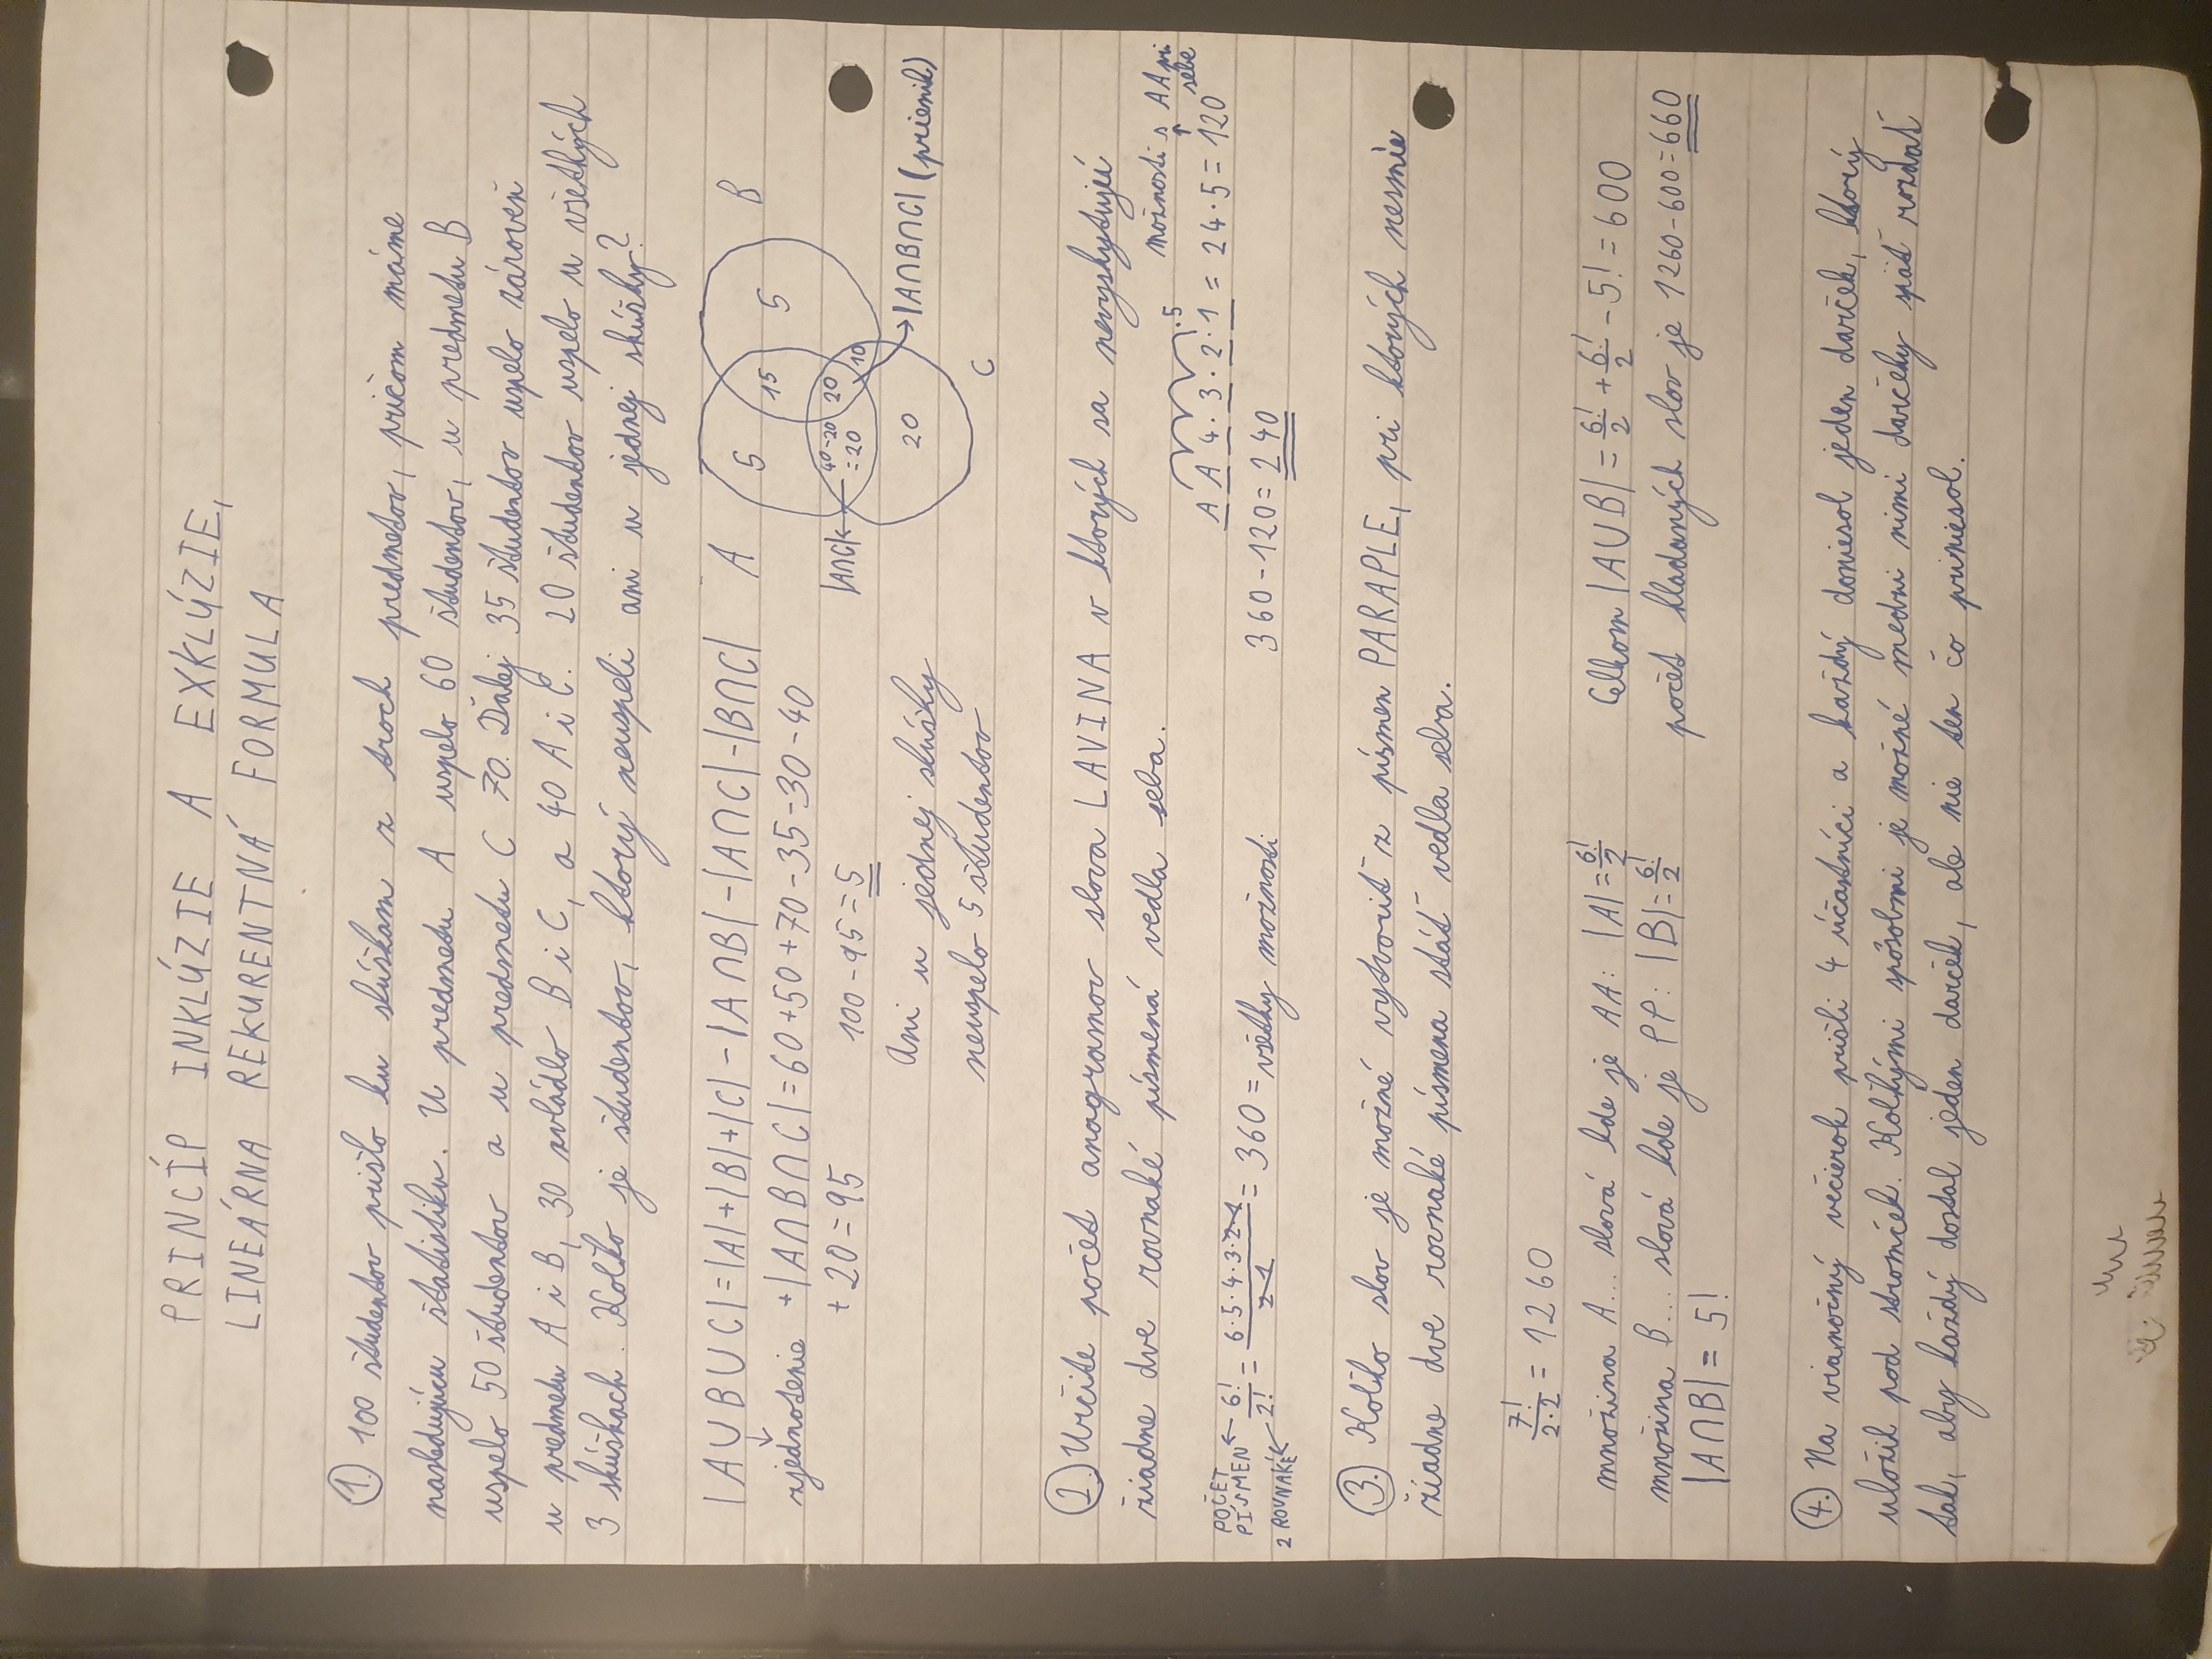 PRINCÍP INKLÚZIE A EXKLÚZIE,
LINEÁRNA REKURENTNÁ FORMULA
1. 100 študentov prišlo ku skúškam z troch predmetov, pričom máme
nasledujúcu štatistiku. U predmetu A uspelo 60 študentov, u predmetu B
uspelo 50 študentov a u predmetu C 70. Ďalej 35 študentov uspelo zároveň
u predmetu A i B, 30 zvládlo B i C, a 40 A i C. 20 študentov uspelo u všetkých
3 skúškach. Koľko je študentov, ktorý neuspeli ani u jednej skúšky?
|A∪B∪C|=|A|+|B|+|C|-|A∩B|-|A∩C|-|B∩C|
zjednotenie +|A∩B∩C|=60+50+70-35-30-40
+20=95 100-95=5
Ani u jednej skúšky
neuspelo 5 študentov
A 5 15 5 B
|A∩C| 40-20 =20 20 10
20 |A∩B∩C| (prienik)
C
2. Určite počet anagramov slova LAVINA v ktorých sa nevyskytujú
žiadne dve rovnaké písmená vedla seba.
možnosti s AA pri sebe
·5
A A 4·3·2·1 = 24·5=120
POČET PÍSMEN ← 6!/2! = 6·5·4·3·2·1/2·1 = 360 = všetky možnosti
2 ROVNAKÉ
360-120=240
3. Koľko slov je možné vytvoriť z písmen PARAPLE, pri ktorých nesmie
žiadne dve rovnaké písmena stáť vedla seba.
7!/2·2 = 1260
množina A... slová kde je AA: |A|=6!/2
množina B... slová kde je PP: |B|=6!/2
|A∩B| = 5!
Celkom |A∪B| = 6!/2 + 6!/2 - 5! = 600
počet hladaných slov je 1260-600=660
4. Na vianočný večierok prišli 4 účastníci a každý doniesol jeden darček, ktorý
uložil pod stromček. Koľkými spôsobmi je možné medzi nimi darčeky späť rozdať
tak, aby každý dostal jeden darček, ale nie ten čo priniesol.